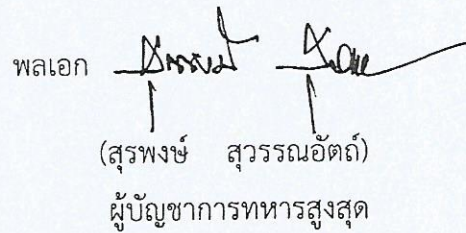 พลเอก
(สุรพงษ์ สุวรรณอัตถ์)
ผู้บัญชาการทหารสูงสุด